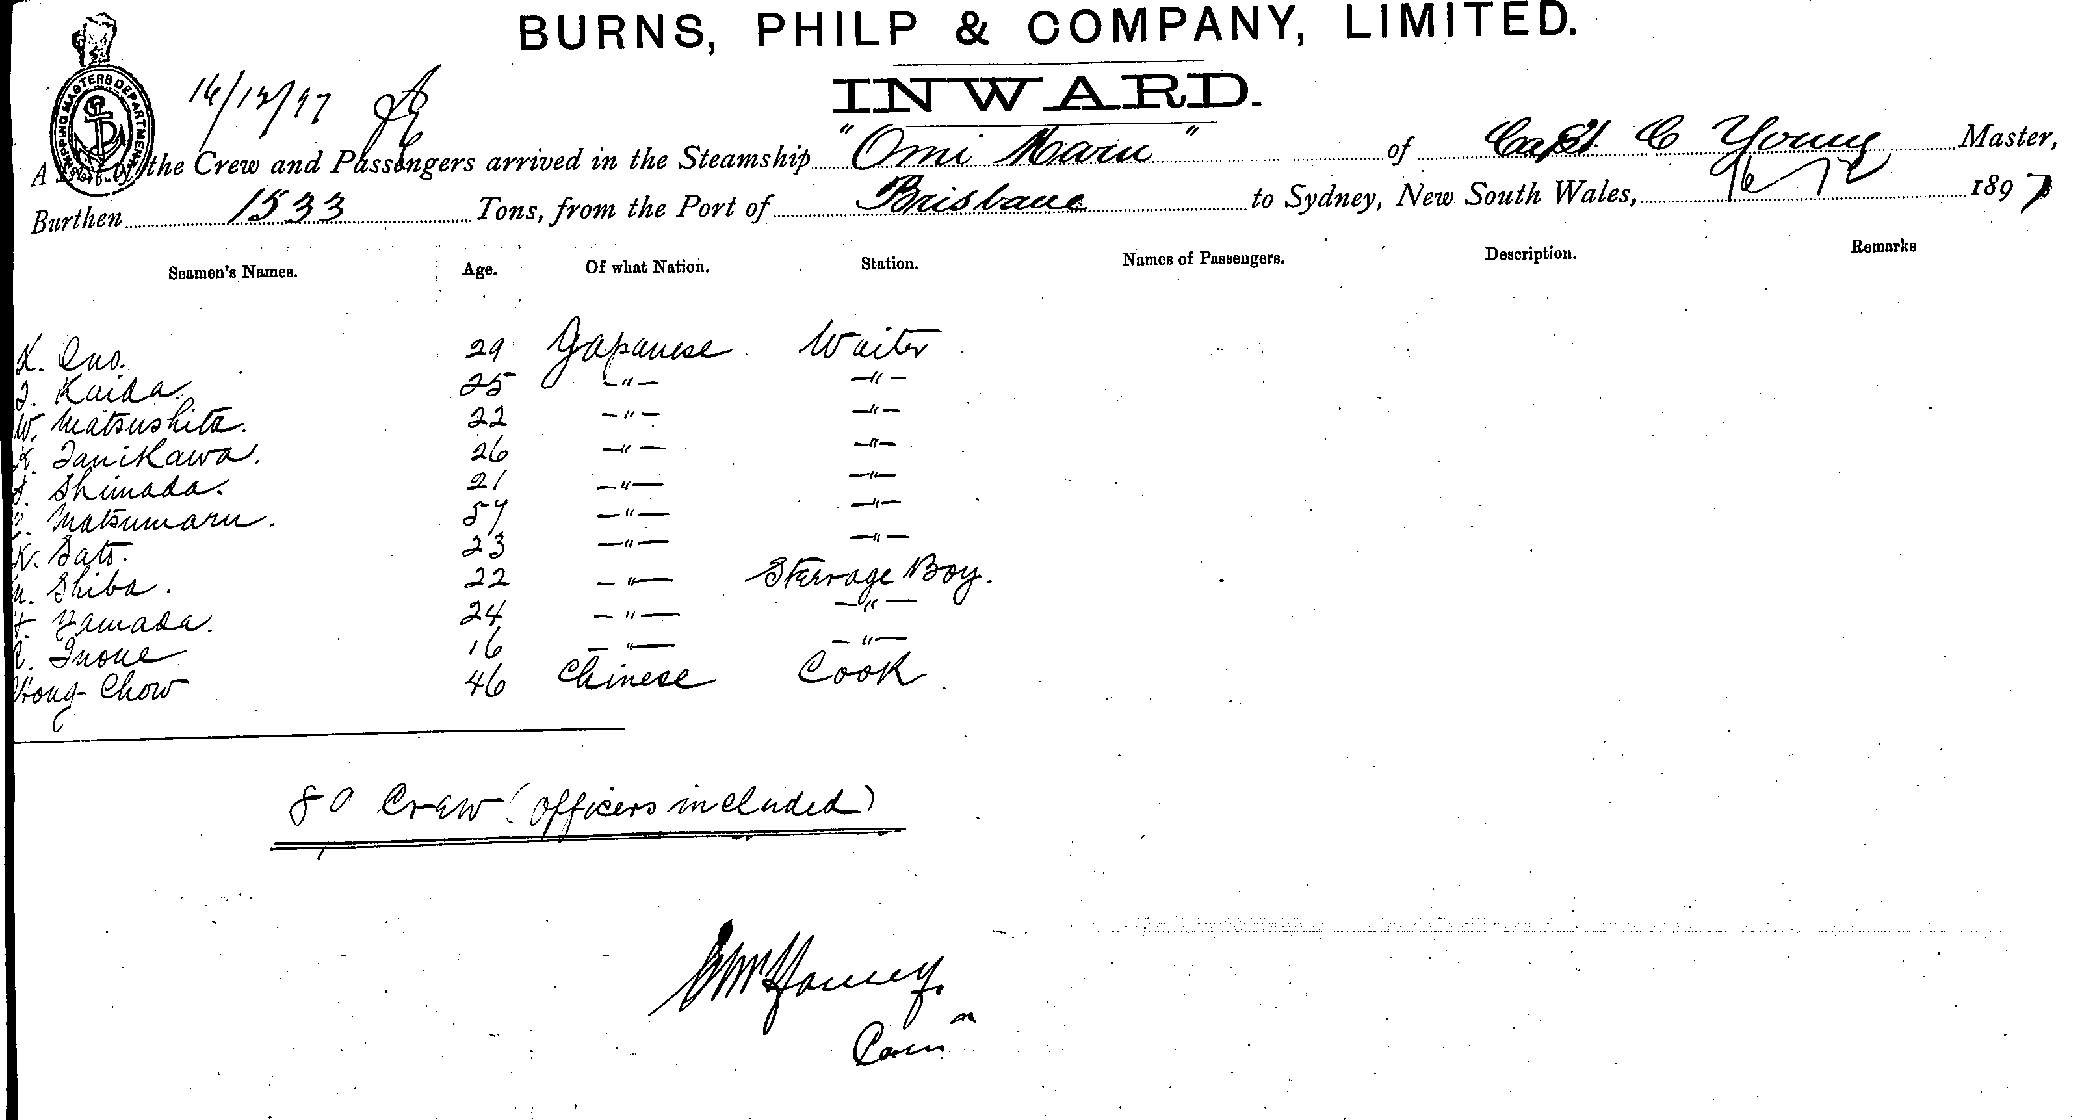 BURNS, PHILP & COMPANY, LIMITED.
INWARD.
SHIPPING MASTERS DEPARTMENT
16/12/97
A of the Crew and Passengers arrived in the Steamship "Omi Maru" of Capt C Young Master,
Burthen 1533 Tons, from the Port of Brisbane to Sydney, New South Wales, 1897
Seamen's Names. Age. Of what Nation. Station. Names of Passengers. Description. Remarks
K. Ono. 29 Japanese Waiter
Kaida. 25 -"- -"-
W. Matsushita. 22 -"- -"-
K. Tanikawa. 26 -"- -"-
Shimada. 21 -"- -"-
Matsumaru. 57 -"- -"-
K. Sato. 23 -"- -"-
Shiba. 22 -"- Steerage Boy.
Yamada. 24 -"- -"-
Inoue 16 -"- -"-
Chow 46 Chinese Cook
80 Crew (officers included)